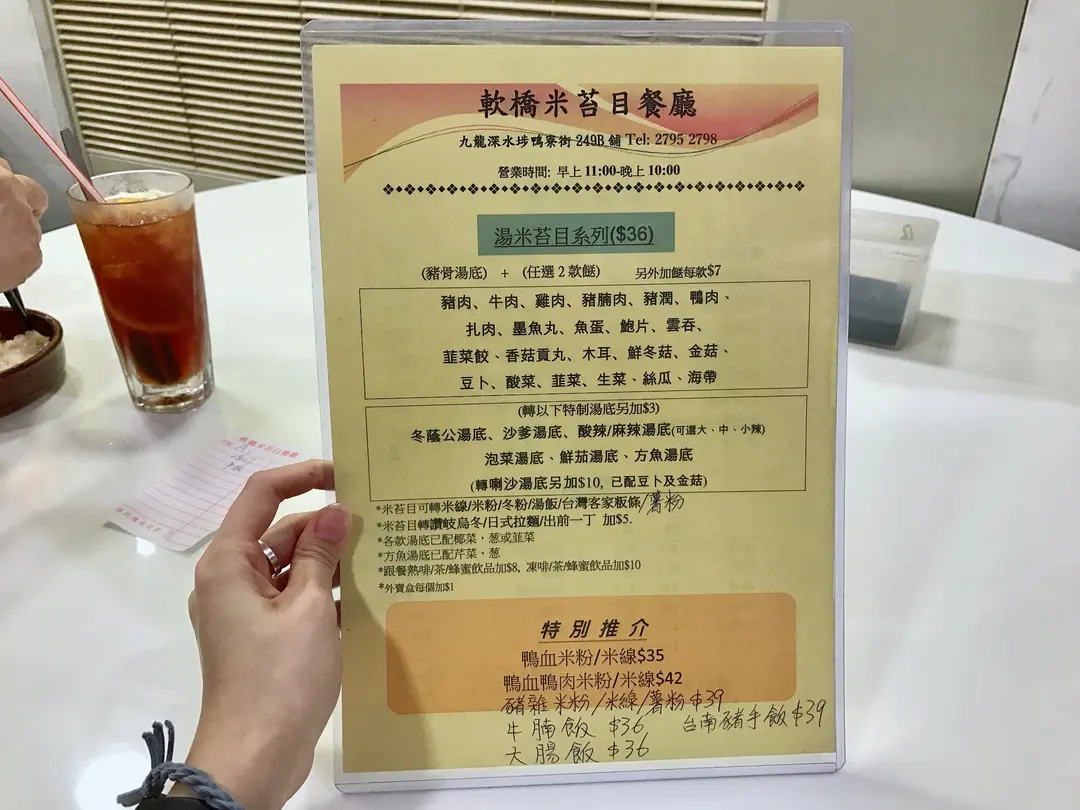 軟橋米苔目餐廳
九龍深水埗鴨寮街 249B 舖 Tel: 2795 2798
營業時間: 早上 11:00-晚上 10:00
湯米苔目系列($36)
(豬骨湯底) + (任選 2 款餸) 另外加餸每款$7
豬肉、牛肉、雞肉、豬腩肉、豬潤、鴨肉、
扎肉、墨魚丸、魚蛋、鮑片、雲吞、
韮菜餃、香菇貢丸、木耳、鮮冬菇、金菇、
豆卜、酸菜、韮菜、生菜、絲瓜、海帶
(轉以下特制湯底另加$3)
冬蔭公湯底、沙爹湯底、酸辣/麻辣湯底(可選大、中、小辣)
泡菜湯底、鮮茄湯底、方魚湯底
(轉喇沙湯底另加$10, 已配豆卜及金菇)
*米苔目可轉米線/米粉/冬粉/湯飯/台灣客家粄條/薯粉
*米苔目轉讚岐烏冬/日式拉麵/出前一丁 加$5.
*各款湯底已配椰菜，葱或韮菜
*方魚湯底已配芹菜、葱
*跟餐熱啡/茶/蜂蜜飲品加$8, 凍啡/茶/蜂蜜飲品加$10
*外賣盒每個加$1
特別推介
鴨血米粉/米線$35
鴨血鴨肉米粉/米線$42
豬雜米粉/米線/薯粉 $39
牛腩飯 $36 台南豬手飯 $39
大腸飯 $36
軟橋米苔目餐廳